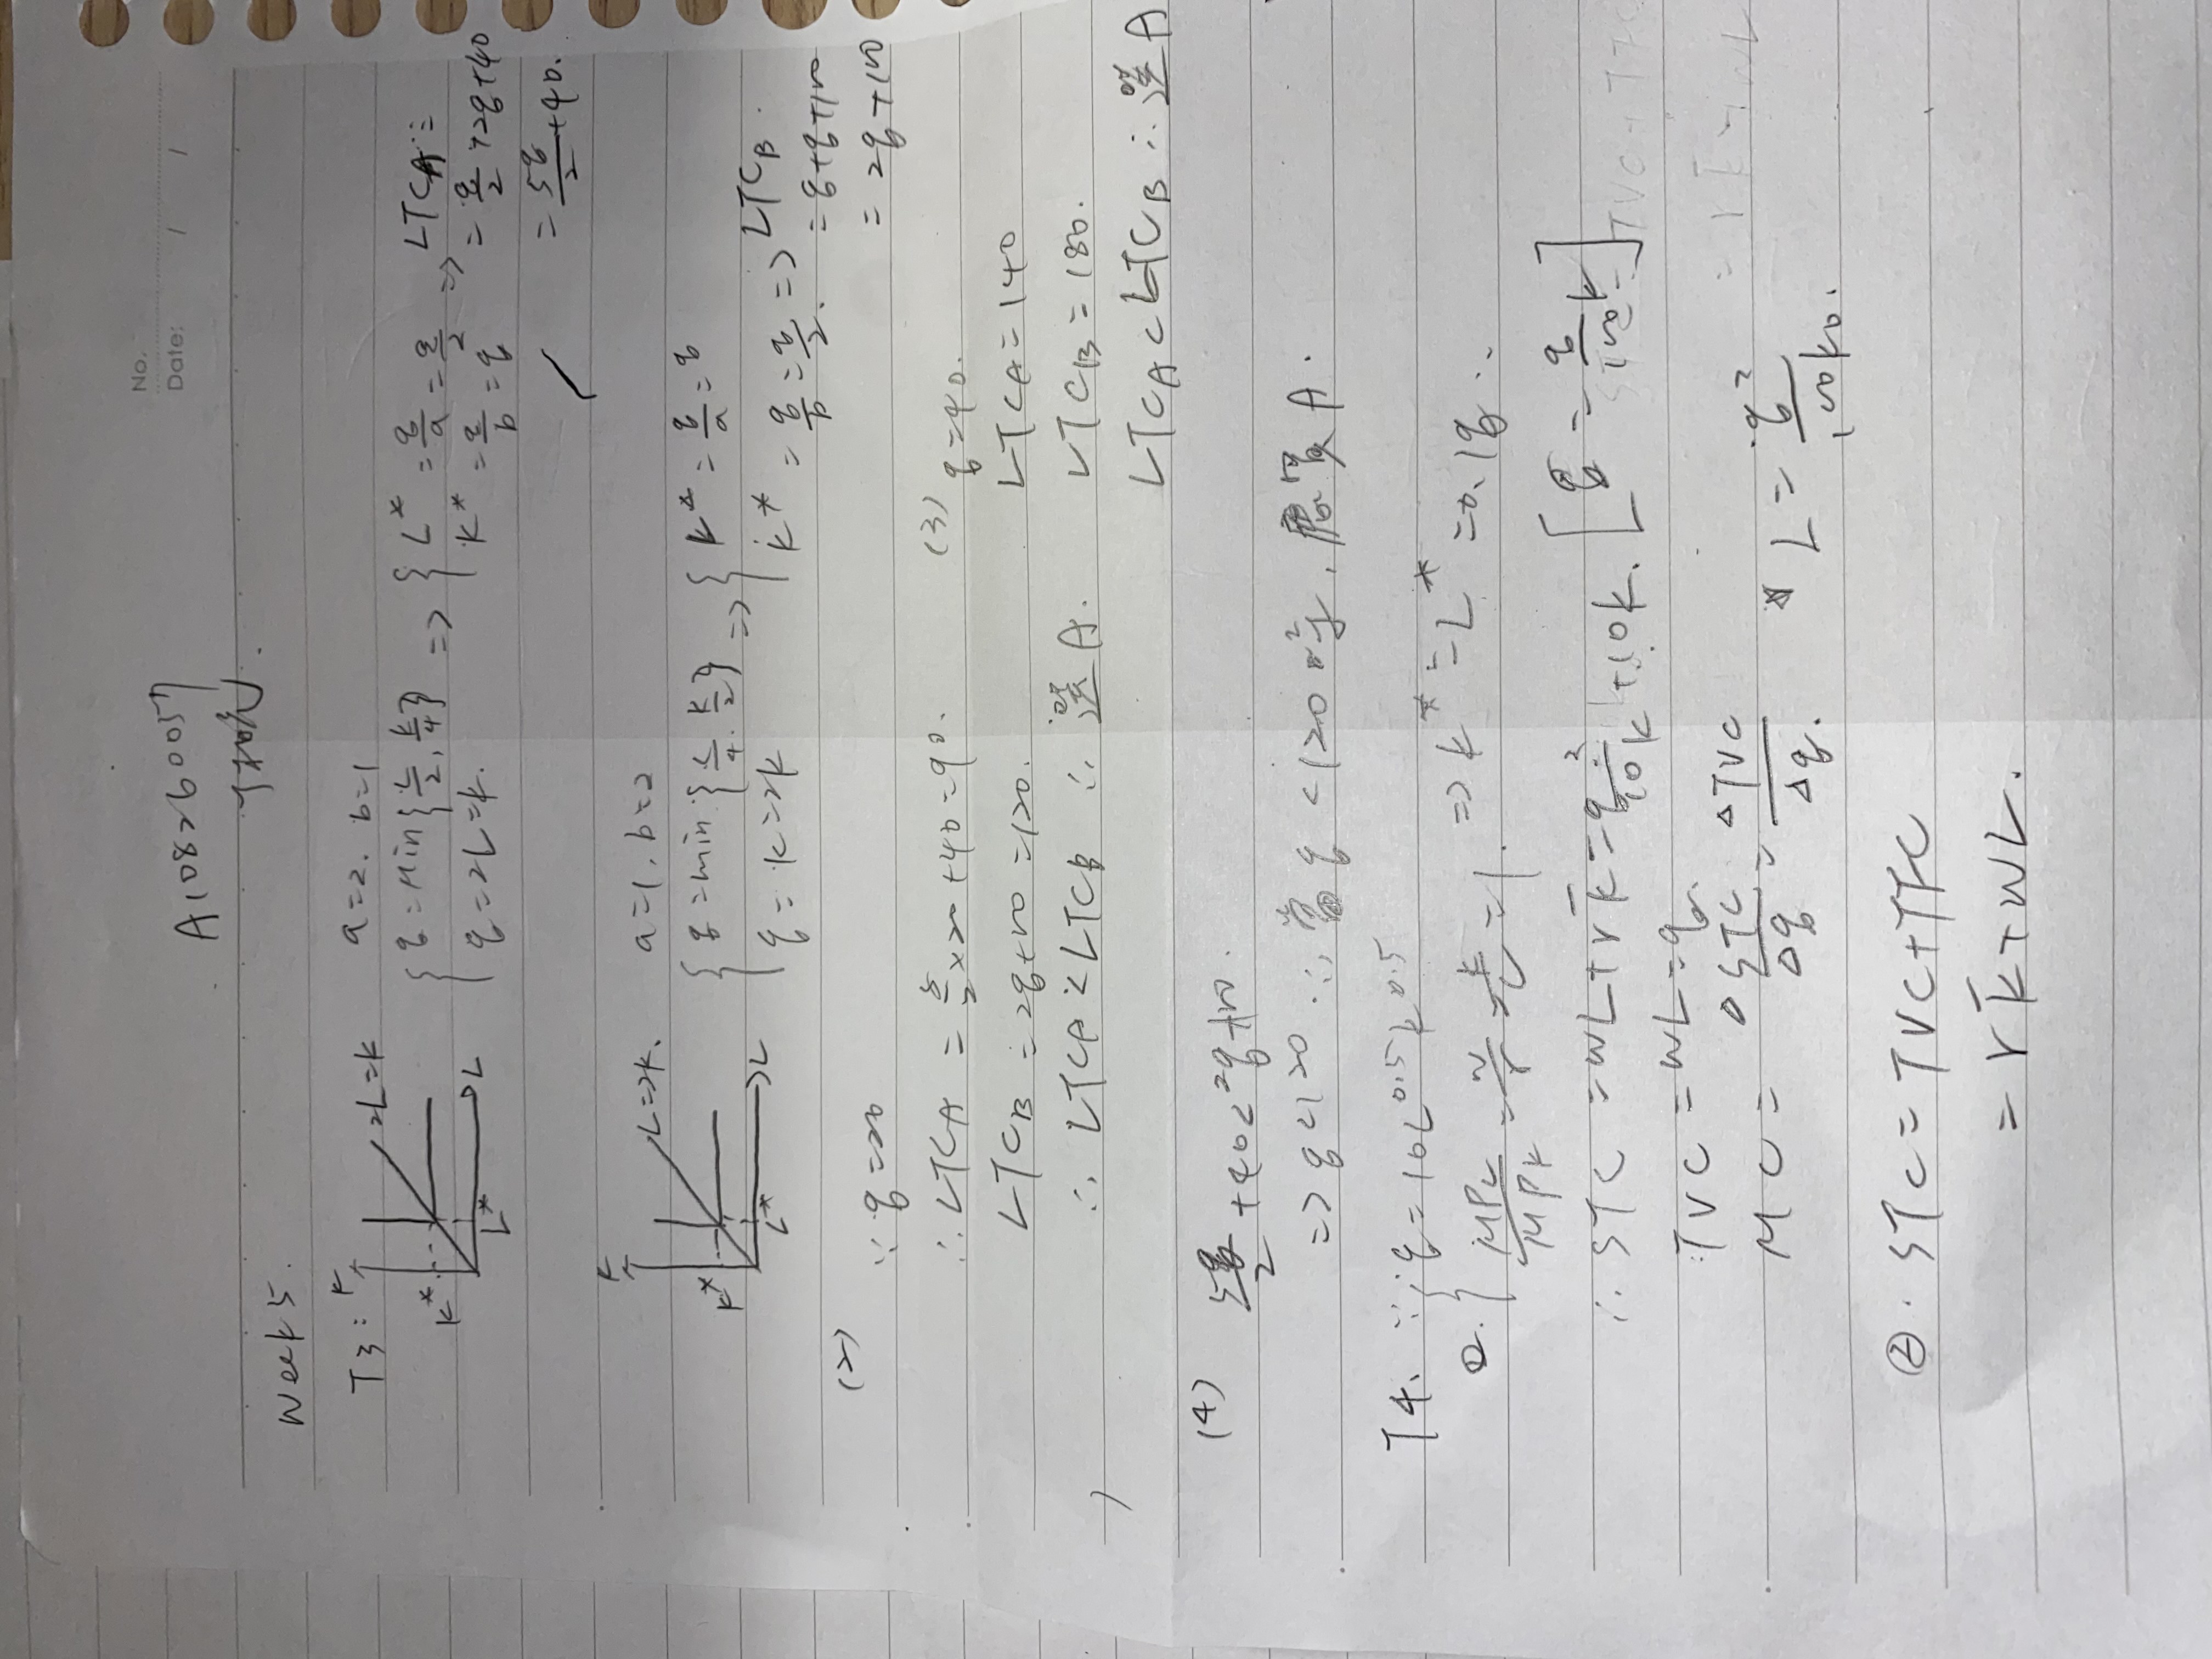 No.
Date: / /
A108260057
Week 5.
T3: K 2L=K K* L* L
a=2. b=1
{ q = Min{L/2, K/4}
q = 2L = K.
=> { L* = q/a = q/2
K* = q/b = q
=> LTCA =
= q/2 + 2q + 40
= 5q/2 + 40.
K L=2K. K* L* L
a=1, b=2
{ q = min {L/4, K/2}
q = K = 2K
=> { K* = q/a = q
K* = q/b = q/2.
=> LTCB.
= q+q+100
= 2q+100
(2)
∵ q=20
∴ LTCA = 5/2 × 20 + 40 = 90.
LTCB = 2q+100 = 120.
∴ LTCA < LTCB ∴ 選 A.
(3) q=40.
LTCA = 140
LTCB = 180.
LTCA < LTCB ∴ 選 A
(4) 5q/2 + 40 < 2q+100.
=> q<120 ∴ 當 q <120 時, 應買 A.
T4. ∵ { q = 10L^0.5 K^0.5
MPL/MPK = w/r = K/L = 1.
=> K* = L* = 0.1q.
∴ STC = wL + rK̄ = q²/10K + 10K.
TVC = wL = q.
MC = ΔSTC/Δq = ΔTVC/Δq.
L = q²/100K0.
②. STC = TVC+TFC
= rK̄+WL.